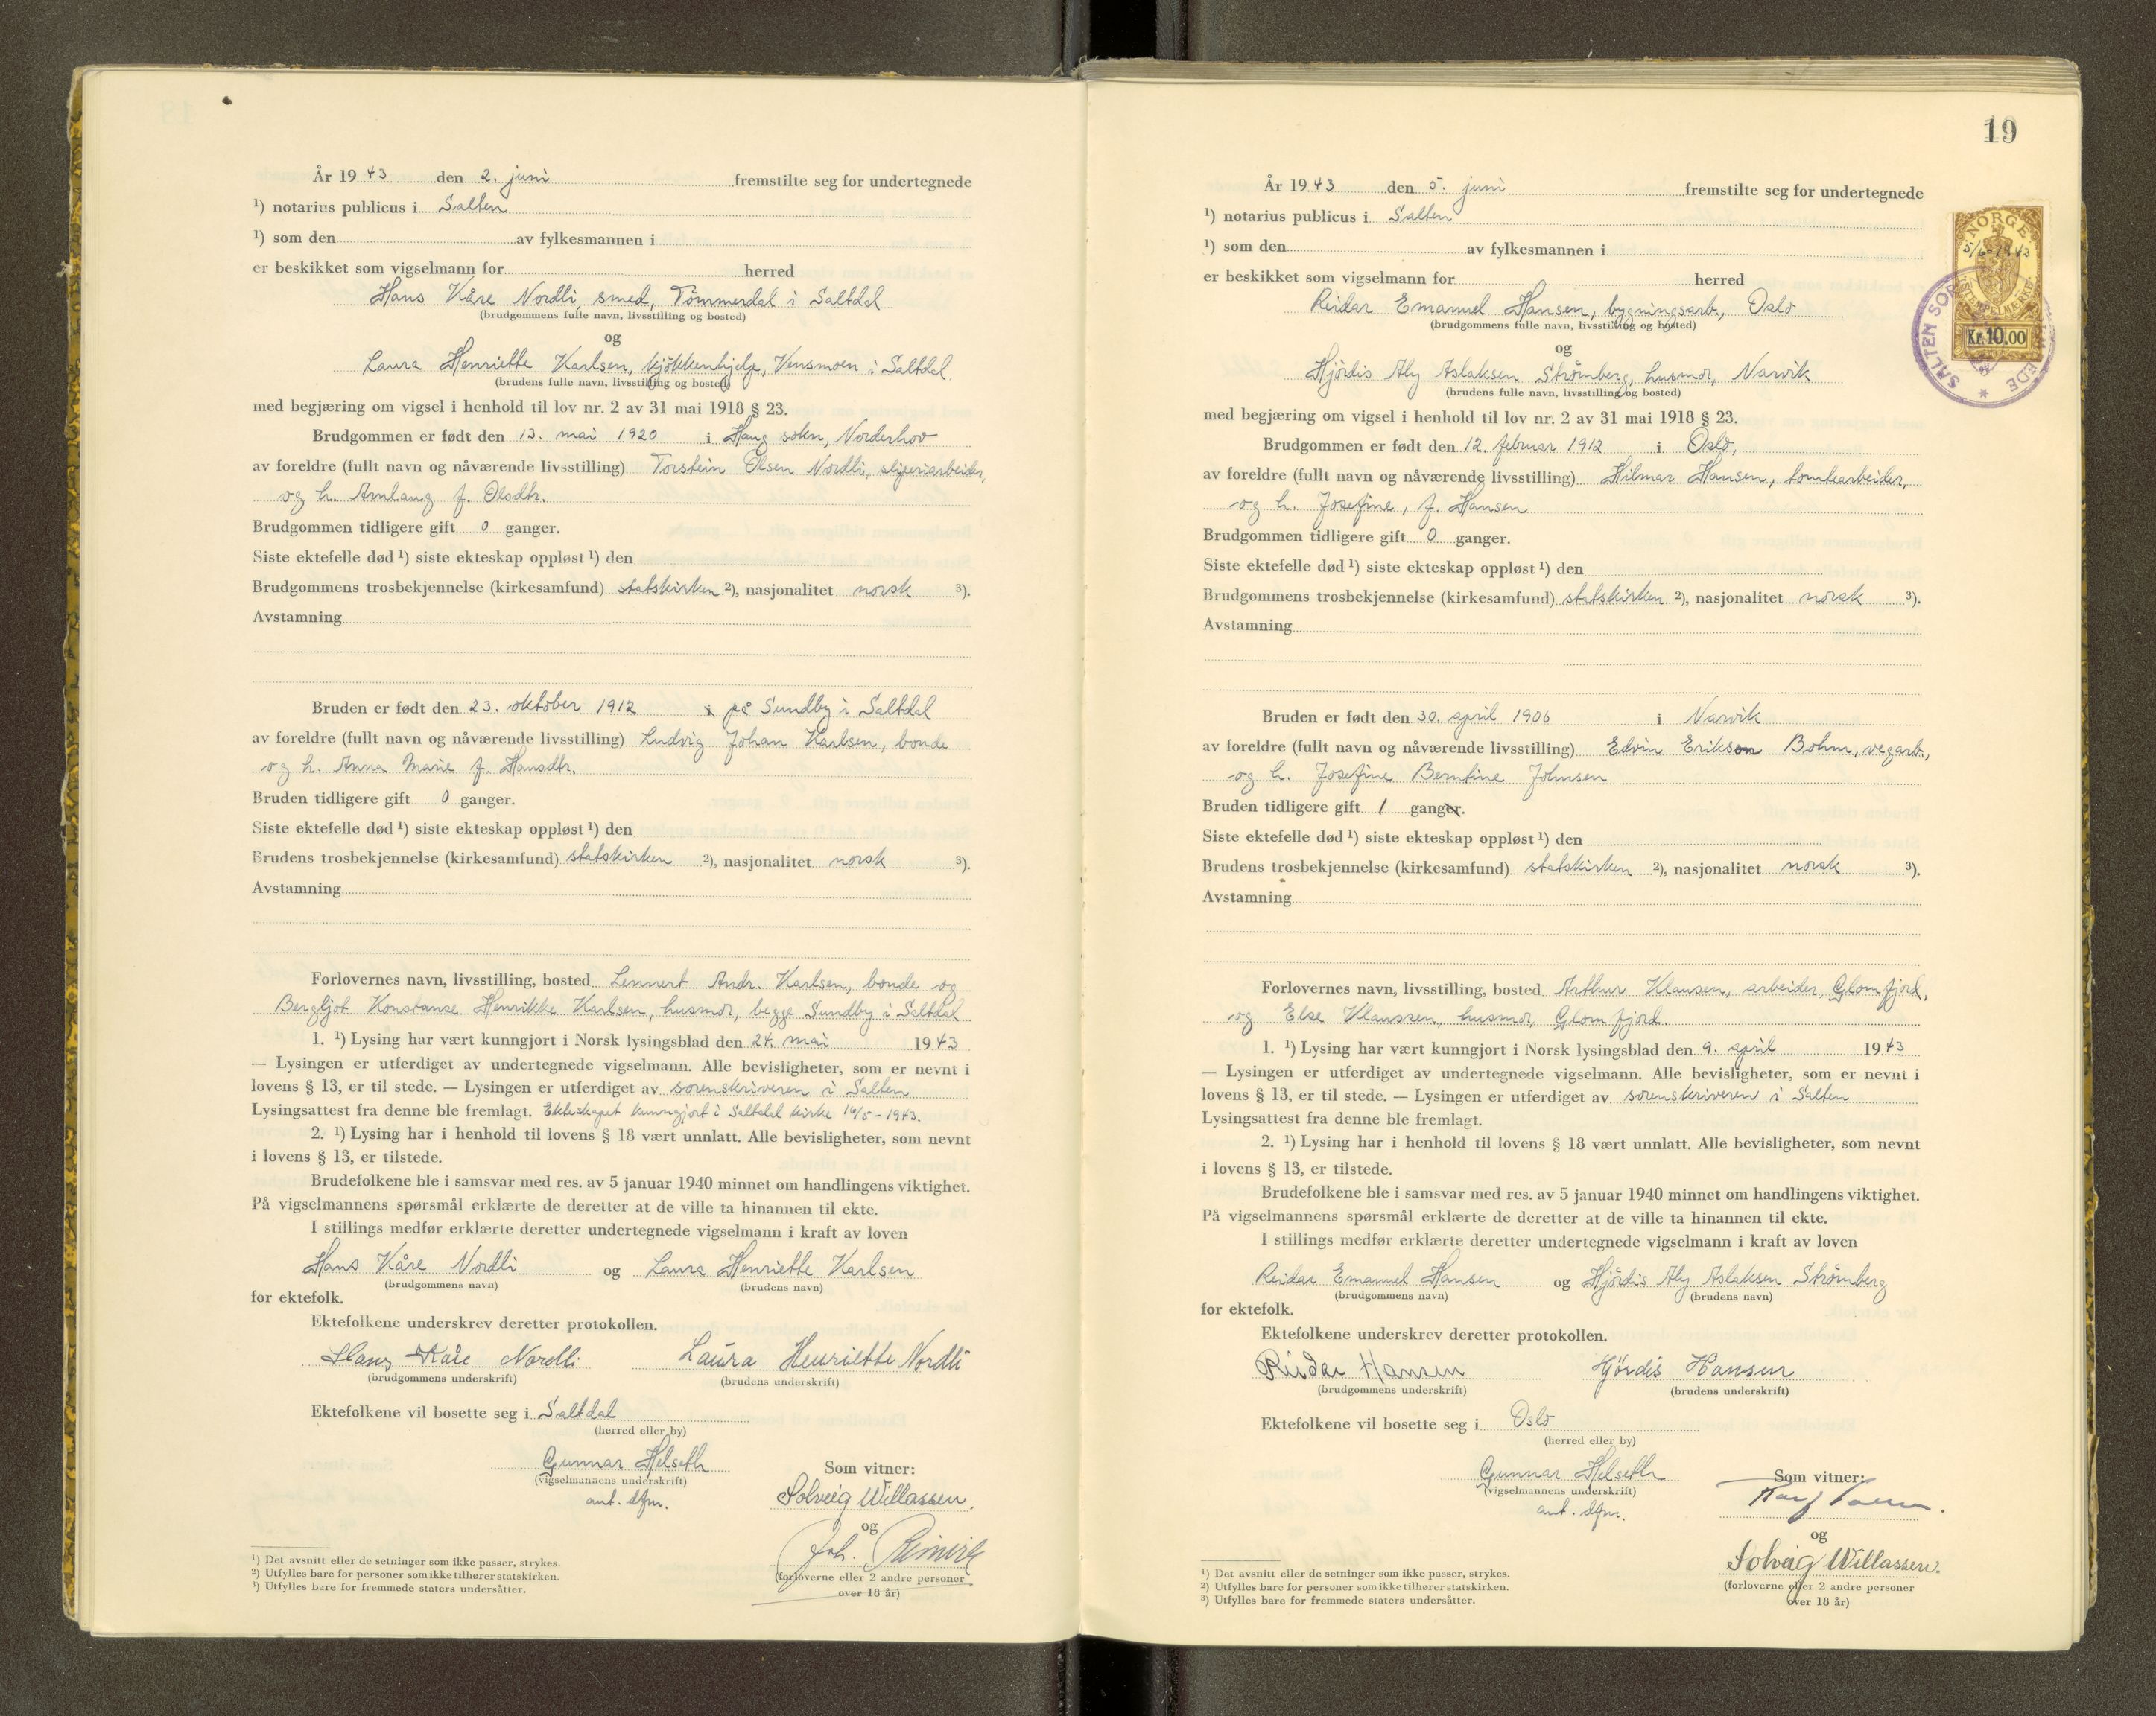 År 1943 den 2. juni fremstilte seg for undertegnede
¹) notarius publicus i Salten
¹) som den av fylkesmannen i
er beskikket som vigselmann for herred
Hans Kåre Nordli, smed, Tömmerdal i Saltdal
(brudgommens fulle navn, livsstilling og bosted)
og
Laura Henriette Karlsen, kjökkenhjelp, Vensmoen i Saltdal.
(brudens fulle navn, livsstilling og bosted)
med begjæring om vigsel i henhold til lov nr. 2 av 31 mai 1918 § 23.
Brudgommen er født den 13. mai 1920 i Haug sokn, Norderhov
av foreldre (fullt navn og nåværende livsstilling) Torstein Olsen Nordli, sliperiarbeider,
og h. Arnlaug f. Olsdtr.
Brudgommen tidligere gift 0 ganger.
Siste ektefelle død ¹) siste ekteskap oppløst ¹) den
Brudgommens trosbekjennelse (kirkesamfund) statskirken ²), nasjonalitet norsk ³).
Avstamning
Bruden er født den 23. oktober 1912 i på Sundby i Saltdal
av foreldre (fullt navn og nåværende livsstilling) Ludvig Johan Karlsen, bonde
og h. Anna Marie f. Hansdtr.
Bruden tidligere gift 0 ganger.
Siste ektefelle død ¹) siste ekteskap oppløst ¹) den
Brudens trosbekjennelse (kirkesamfund) statskirken ²), nasjonalitet norsk ³).
Avstamning
Forlovernes navn, livsstilling, bosted Lennert Andr. Karlsen, bonde og
Bergljot Konstanse Henrikke Karlsen, husmor, begge Sundby i Saltdal
1. ¹) Lysing har vært kunngjort i Norsk lysingsblad den 24. mai 1943
— Lysingen er utferdiget av undertegnede vigselmann. Alle bevisligheter, som er nevnt i
lovens § 13, er til stede. — Lysingen er utferdiget av sorenskriveren i Salten
Lysingsattest fra denne ble fremlagt. Ekteskapet kunngjort i Saltdal kirke 16/5-1943.
2. ¹) Lysing har i henhold til lovens § 18 vært unnlatt. Alle bevisligheter, som nevnt
i lovens § 13, er tilstede.
Brudefolkene ble i samsvar med res. av 5 januar 1940 minnet om handlingens viktighet.
På vigselmannens spørsmål erklærte de deretter at de ville ta hinannen til ekte.
I stillings medfør erklærte deretter undertegnede vigselmann i kraft av loven
Hans Kåre Nordli og Laura Henriette Karlsen
(brudgommens navn) (brudens navn)
for ektefolk.
Ektefolkene underskrev deretter protokollen.
Hans Kåre Nordli Laura Henriette Nordli
(brudgommens underskrift) (brudens underskrift)
Ektefolkene vil bosette seg i Saltdal
(herred eller by)
Gunnar Helseth
(vigselmannens underskrift)
aut. dfm.
Som vitner:
Solveig Willassen.
og
Joh.
(forloverne eller 2 andre personer
over 18 år)
¹) Det avsnitt eller de setninger som ikke passer, strykes.
²) Utfylles bare for personer som ikke tilhører statskirken.
³) Utfylles bare for fremmede staters undersåtter.
19
År 1943 den 5. juni fremstilte seg for undertegnede
¹) notarius publicus i Salten
¹) som den av fylkesmannen i
er beskikket som vigselmann for herred
Reidar Emanuel Hansen, bygningsarb., Oslo
(brudgommens fulle navn, livsstilling og bosted)
og
Hjördis Aly Aslaksen Strömberg, husmor, Narvik
(brudens fulle navn, livsstilling og bosted)
med begjæring om vigsel i henhold til lov nr. 2 av 31 mai 1918 § 23.
Brudgommen er født den 12. februar 1912 i Oslo,
av foreldre (fullt navn og nåværende livsstilling) Hilmar Hansen, tomtearbeider,
og h. Josefine, f. Hansen
Brudgommen tidligere gift 0 ganger.
Siste ektefelle død ¹) siste ekteskap oppløst ¹) den
Brudgommens trosbekjennelse (kirkesamfund) statskirken ²), nasjonalitet norsk ³).
Avstamning
Bruden er født den 30. april 1906 i Narvik
av foreldre (fullt navn og nåværende livsstilling) Edvin Erikson Bohm, vegarb.,
og h. Josefine Berntine Johnsen
Bruden tidligere gift 1 ganger.
Siste ektefelle død ¹) siste ekteskap oppløst ¹) den
Brudens trosbekjennelse (kirkesamfund) statskirken ²), nasjonalitet norsk ³).
Avstamning
Forlovernes navn, livsstilling, bosted Arthur Klausen, arbeider, Glomfjord,
og Else Klaussen, husmor, Glomfjord.
1. ¹) Lysing har vært kunngjort i Norsk lysingsblad den 9. april 1943
— Lysingen er utferdiget av undertegnede vigselmann. Alle bevisligheter, som er nevnt i
lovens § 13, er til stede. — Lysingen er utferdiget av sorenskriveren i Salten
Lysingsattest fra denne ble fremlagt.
2. ¹) Lysing har i henhold til lovens § 18 vært unnlatt. Alle bevisligheter, som nevnt
i lovens § 13, er tilstede.
Brudefolkene ble i samsvar med res. av 5 januar 1940 minnet om handlingens viktighet.
På vigselmannens spørsmål erklærte de deretter at de ville ta hinannen til ekte.
I stillings medfør erklærte deretter undertegnede vigselmann i kraft av loven
Reidar Emanuel Hansen og Hjördis Aly Aslaksen Strömberg
(brudgommens navn) (brudens navn)
for ektefolk.
Ektefolkene underskrev deretter protokollen.
Reidar Hansen Hjördis Hansen
(brudgommens underskrift) (brudens underskrift)
Ektefolkene vil bosette seg i Oslo
(herred eller by)
Gunnar Helseth
(vigselmannens underskrift)
aut. dfm.
Som vitner:
og
Solveig Willassen.
(forloverne eller 2 andre personer
over 18 år)
¹) Det avsnitt eller de setninger som ikke passer, strykes.
²) Utfylles bare for personer som ikke tilhører statskirken.
³) Utfylles bare for fremmede staters undersåtter.
NORGE
5/6-1943
STEMPELMERKE
Kr. 10.00
SALTEN